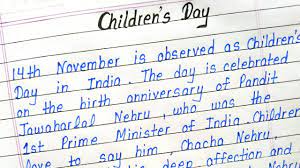 Children's Day
14th November is observed as Children's
Day in India. The day is celebrated
on the birth anniversary of Pandit
Jawaharlal Nehru, who was the
1st Prime Minister of India. Children
love to say him, Chacha Nehru,
his deep affection and